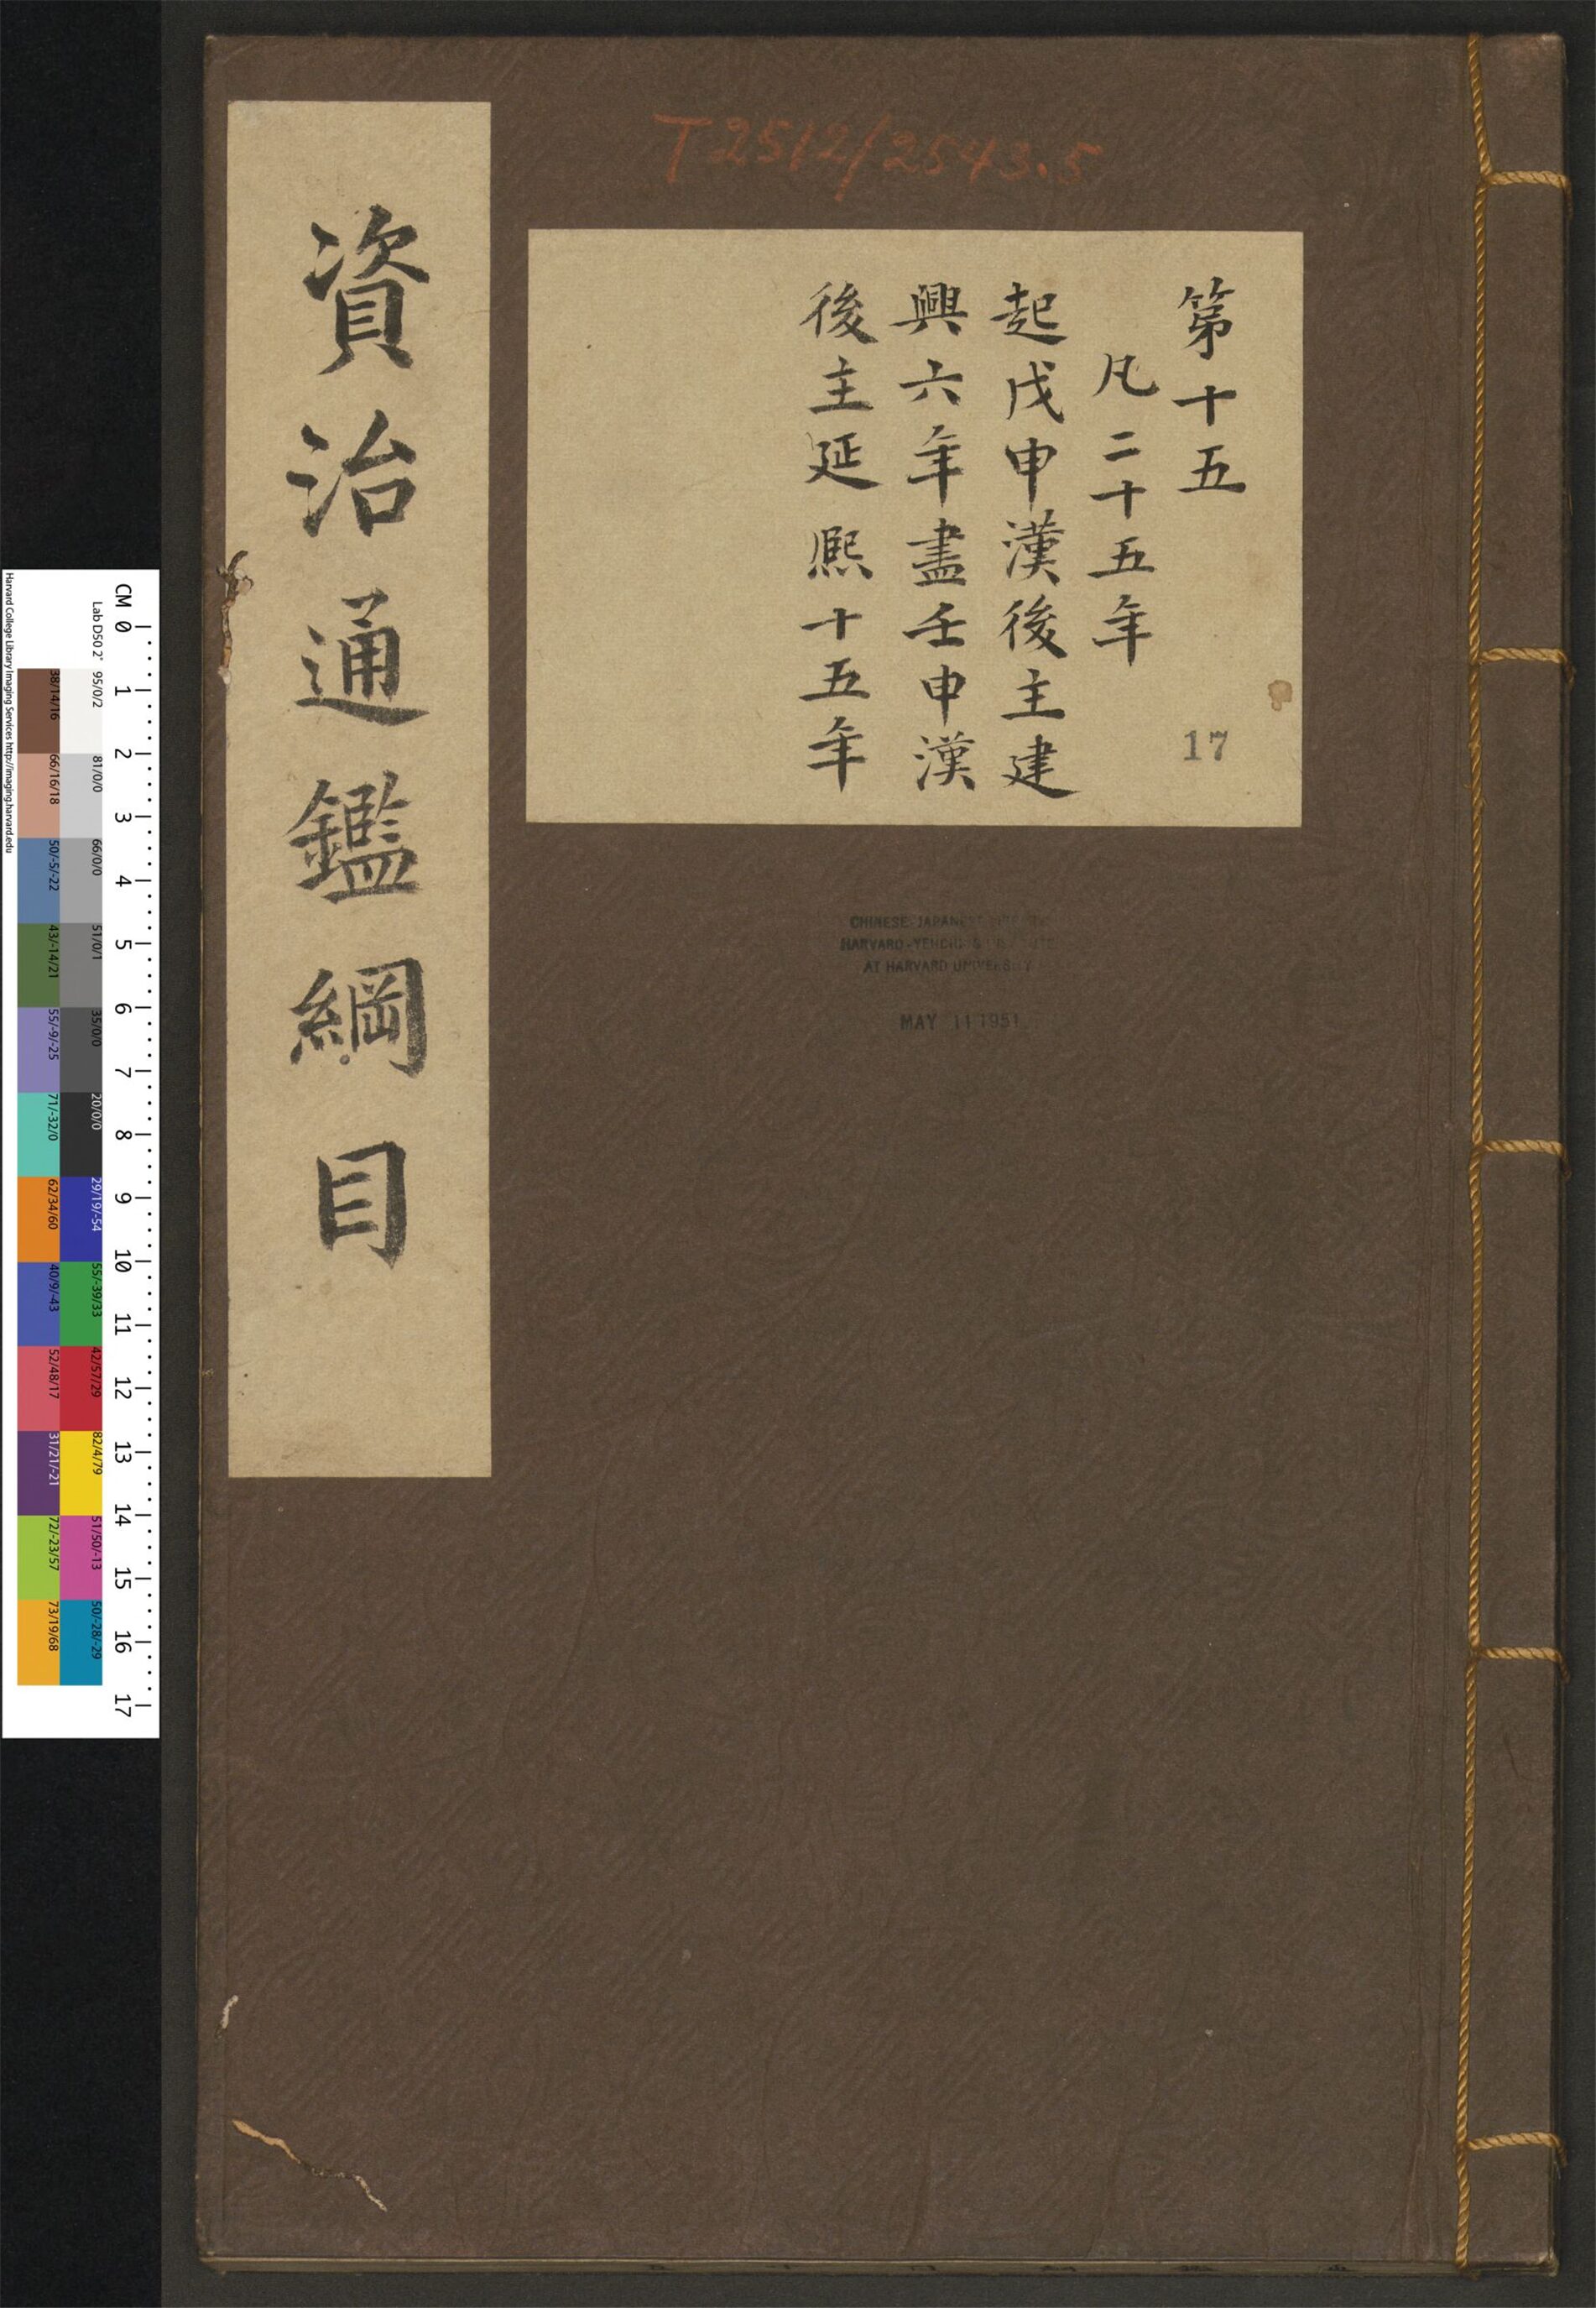 T2512/2543.5
第十五
凡二十五年
起戊申漢後主建
興六年盡壬申漢
後主延熙十五年
17
資治通鑑綱目
CHINESE-JAPANESE LIBRARY
HARVARD-YENCHING INSTITUTE
AT HARVARD UNIVERSITY
MAY 11 1951
CM 0 1 2 3 4 5 6 7 8 9 10 11 12 13 14 15 16 17
Lab D50 2° 95/0/2 81/0/0 66/0/0 51/0/1 35/0/0 20/0/0 29/19/-54 55/-39/33 42/57/29 82/4/79 51/50/-13 50/-28/-29
38/14/16 66/16/18 50/-5/-22 43/-14/21 55/-9/-25 71/-32/0 62/34/60 40/9/-43 52/48/17 31/21/-21 72/-23/57 73/19/68
Harvard College Library Imaging Services http://imaging.harvard.edu